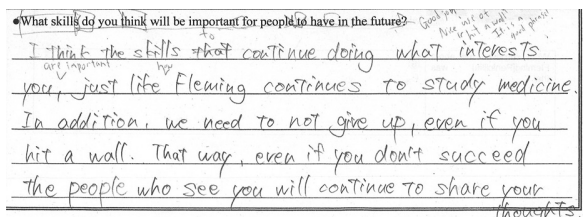 ●What skills do you think will be important for people to have in the future?
Good job
Nice use of
"hit a wall"
It is a
good phrase!
to
I think the skills that continue doing what interests
are important
how
you, just like Fleming continues to study medicine.
In addition, we need to not give up, even if you
hit a wall. That way, even if you don't succeed
the people who see you will continue to share your
thoughts